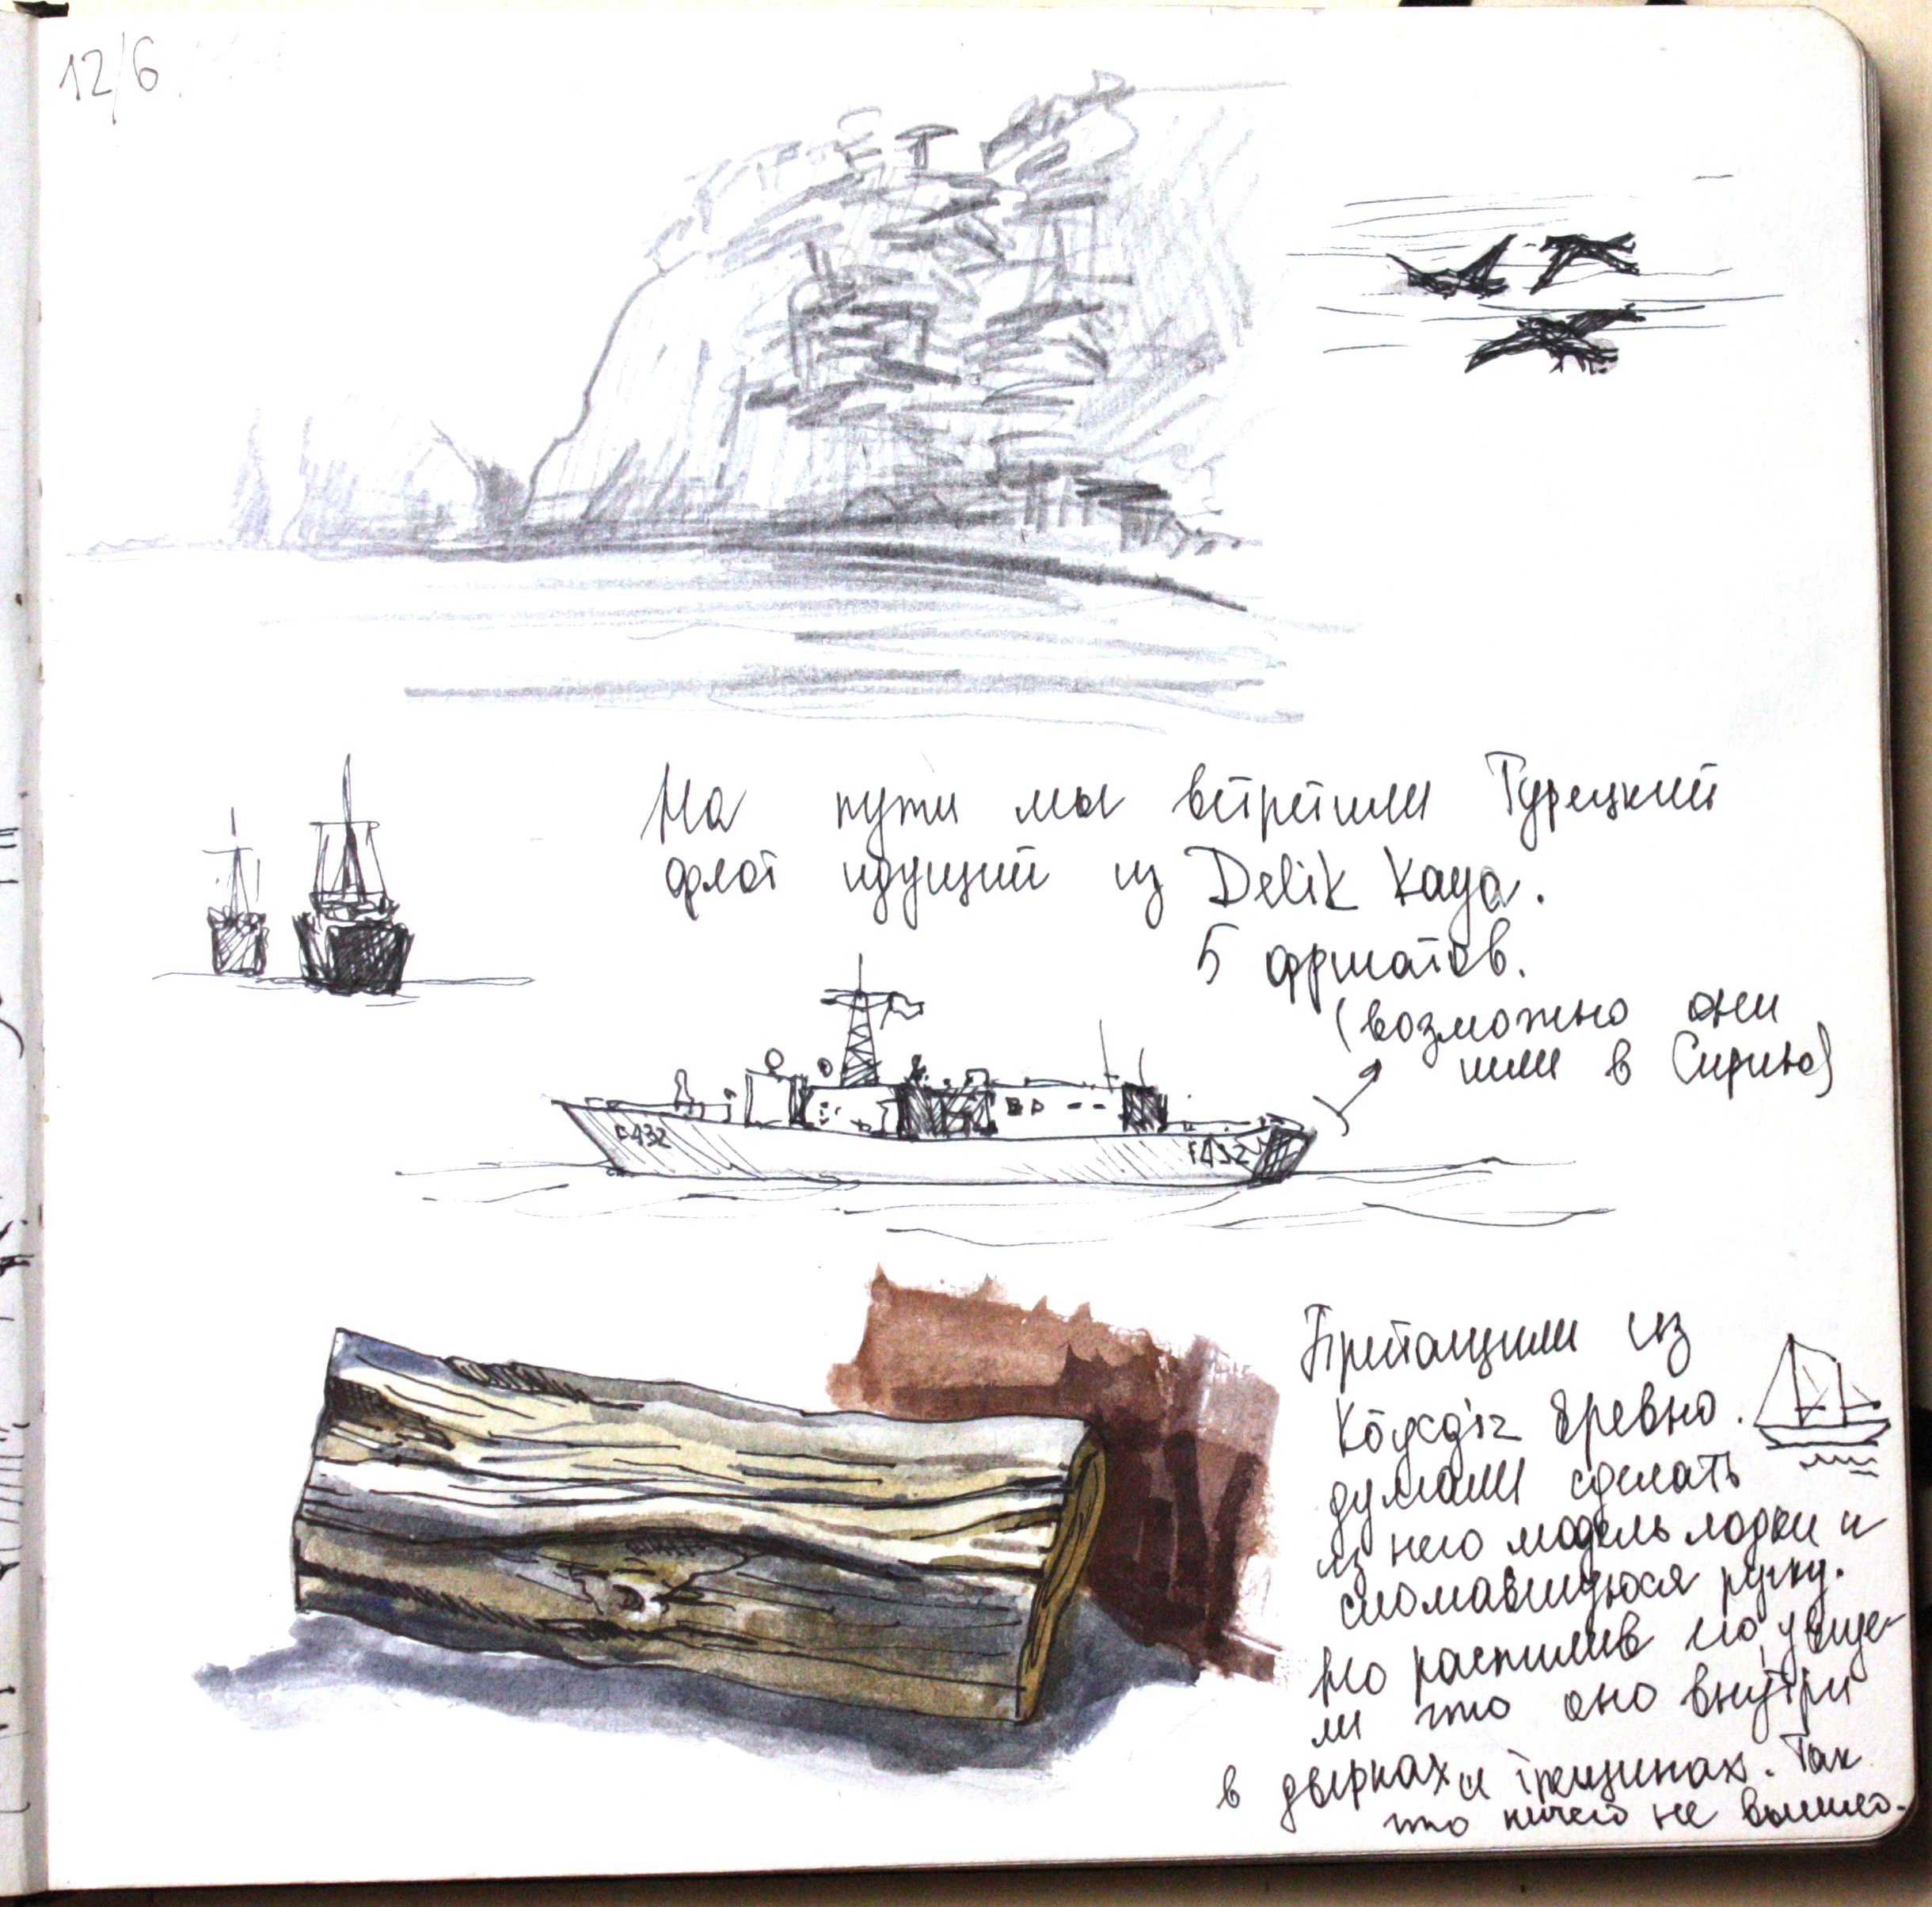 12/6
На пути мы встретили Турецкий
флот идущий из Delik Kaya.
5 фригатов.
(возможно они
шли в Сирию)
F432
F432
Притащили из
бревно.
думали сделать
из него модель лодки и
сломавшуюся ручку.
Но распилив его, увиде-
ли что оно внутри
в дырках и трещинах. Так
что ничего не вышло.